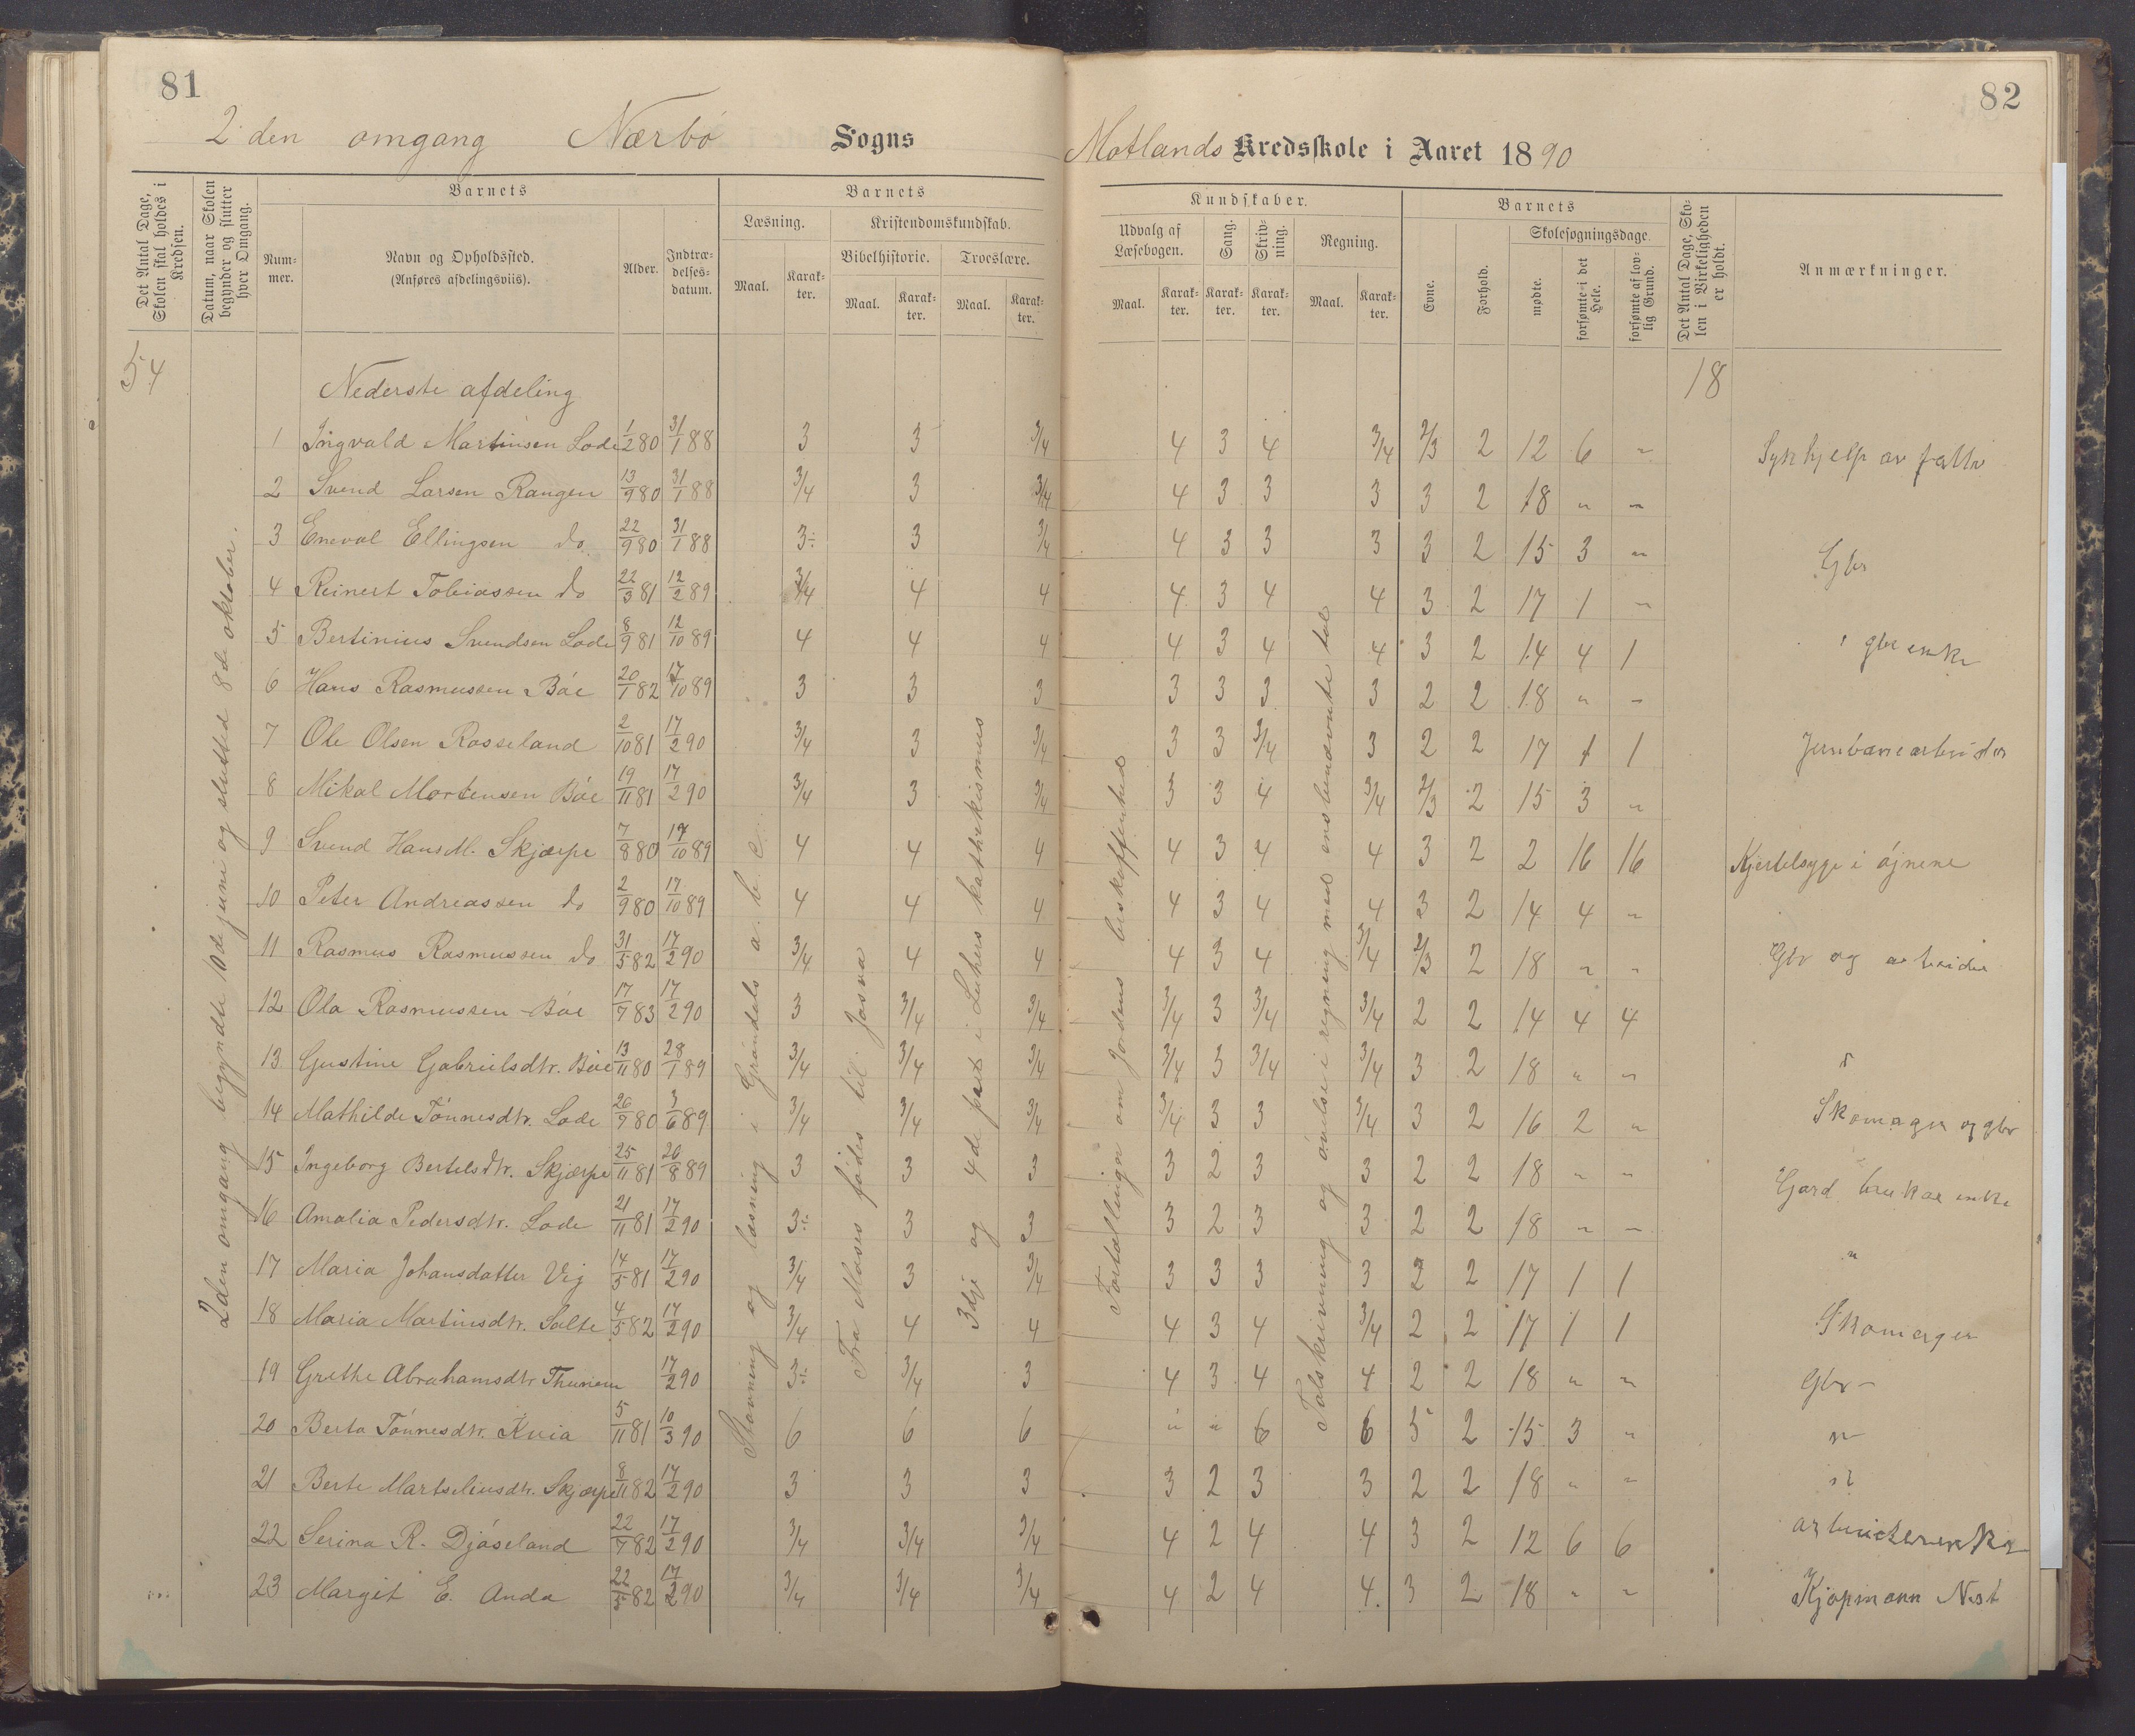 81
82
2den omgang Nærbö Sogns
Motlands Kredsskole i Aaret 1890
Det Antal Dage, Skolen skal holdes i Kredsen.
Datum, naar Skolen begynder og slutter hver Omgang.
Barnets
Nummer.
Navn og Opholdssted. (Anføres afdelingsviis).
Alder.
Indtrædelsesdatum.
Barnets
Læsning.
Maal.
Karakter.
Kristendomskundskab.
Bibelhistorie.
Maal.
Karakter.
Troeslære.
Maal.
Karakter.
Kundskaber.
Udvalg af Læsebogen.
Maal.
Karakter.
Sang.
Karakter.
Skrivning.
Karakter.
Regning.
Maal.
Karakter.
Barnets
Evne.
Forhold.
Skolesøgningsdage.
mødte.
forsømte i det Hele.
forsømte af lovlig Grund.
Det Antal Dage, Skolen i Virkeligheden er holdt.
Anmærkninger.
54
18
Nederste afdeling
2den omgang begyndte 10de juni og sluttede 8de oktober.
Stavning og læsning i Gröndals a.b.c.
Fra Moses födes til Josva
3dje og 4de part i Luthers kathekismus
Fortællinger om Jordens beskaffenhed
Talskrivning og övelse i regning med ensbenævnte tal
1 Ingvald Martinsen Lode 1/2 80 31/1 88 3 3 3/4 4 3 4 3/4 2/3 2 12 6 "
2 Svend Larsen Rangen 13/9 80 31/1 88 3/4 3 3/4 4 3 3 3 3 2 18 " "
3 Eneval Ellingsen do 22/9 80 31/1 88 3÷ 3 3/4 4 3 3 3 3 2 15 3 " Gbr
4 Reinert Tobiassen do 22/3 81 12/2 89 3/4 4 4 4 3 4 4 3 2 17 1 "
5 Bertinius Svendsen Lode 8/9 81 12/10 89 4 4 4 4 3 4 4 3 2 14 4 1 gbr enke
6 Hans Rasmussen Böe 20/1 82 17/10 89 3 3 3 3 3 3 3 2 2 18 " "
7 Ole Olsen Rosseland 2/10 81 17/2 90 3/4 3 3/4 3 3 3/4 3 2 2 17 1 1 Jernbanearbeider
8 Mikal Mortensen Böe 19/11 81 17/2 90 3/4 3 3/4 3 3 4 3/4 2/3 2 15 3 "
9 Svend Hans M. Skjærpe 7/8 80 17/10 89 4 4 4 4 3 4 4 3 2 2 16 16 Kjertelsyge i öjnene
10 Peter Andreassen do 2/9 80 17/10 89 4 4 4 4 3 4 4 3 2 14 4 "
11 Rasmus Rasmussen do 31/5 82 17/2 90 3/4 4 4 4 3 4 3/4 2/3 2 18 " " Gbr og arbeider
12 Ola Rasmussen Böe 17/7 83 17/2 90 3 3/4 3/4 3/4 3 3/4 3/4 2 2 14 4 4
13 Gustine Gabrielsdtr. Böe 13/11 80 28/1 89 3/4 3/4 3/4 3/4 3 3/4 3/4 3 2 18 " "
14 Mathilde Tönnesdtr. Lode 26/9 80 3/6 89 3/4 3/4 3/4 3/4 3 3 3/4 3 2 16 2 " Skomager og gbr
15 Ingeborg Bertelsdtr. Skjærpe 25/11 81 20/8 89 3 3 3 3 2 3 3 2 2 18 " " Gard brukar enke
16 Amalia Pedersdtr. Lode 21/11 81 17/2 90 3÷ 3 3 3 2 3 3 2 2 18 " "
17 Maria Johansdatter Vig 14/5 81 17/2 90 3/4 3 3/4 3 3 3 3 2 2 17 1 1 "
18 Maria Martinsdtr. Salte 4/5 82 17/2 90 3/4 4 4 4 3 4 3/4 2 2 17 1 1 Skomager
19 Grethe Abrahamsdtr. Thunem 17/2 90 3÷ 3/4 3 4 3 4 4 2 2 18 " " Gbr
20 Berta Tönnesdtr. Kvia 5/11 81 10/3 90 6 6 6 " " 6 6 5 2 15 3 " "
21 Berte Martseliusdtr. Skjærpe 8/11 82 17/2 90 3 3 3 3 2 3 3 2 2 18 " "
22 Serina R. Djöseland 22/7 82 17/2 90 3/4 3/4 3/4 4 2 4 4 3 2 12 6 6
23 Margit E. Anda 22/5 82 17/2 90 3/4 3/4 3/4 4 2 4 4 3 2 18 " " Kjøpmann